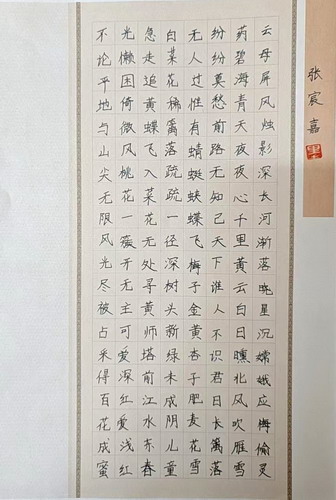 云母屏风烛影深长河渐落晓星沉嫦娥应悔偷灵
药碧海青天夜夜心千里黄云白日曛北风吹雁雪
纷纷莫愁前路无知己天下谁人不识君日长篱落
无人过惟有蜻蜓蛱蝶飞梅子金黄杏子肥麦花雪
白菜花稀篱落疏疏一径深树头新绿未成阴儿童
急走追黄蝶飞入菜花无处寻黄师塔前江水东春
光懒困倚微风桃花一簇开无主可爱深红爱浅红
不论平地与山尖无限风光尽被占采得百花成蜜
张宸嘉